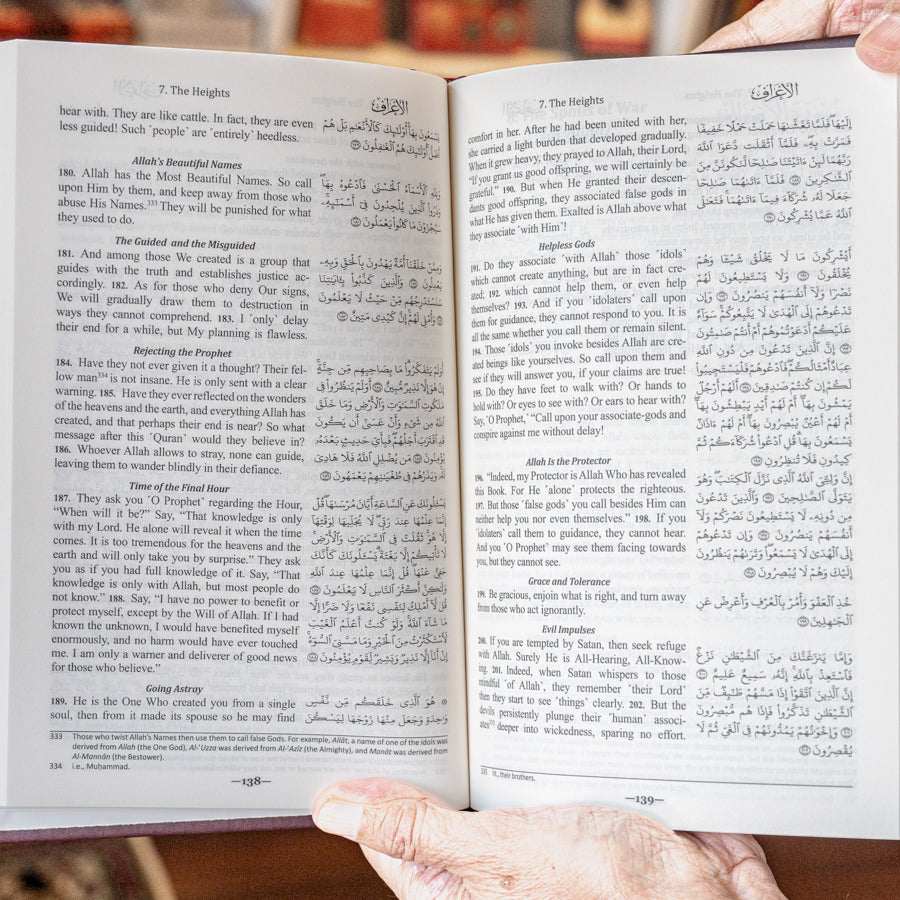 7. The Heights
الأعراف
hear with. They are like cattle. In fact, they are even
less guided! Such ˹people˺ are ˹entirely˺ heedless.
يَسْمَعُونَ بِهَآ أُوْلَـٰٓئِكَ كَٱلْأَنْعَـٰمِ بَلْ هُمْ
أَضَلُّ أُوْلَـٰٓئِكَ هُمُ ٱلْغَـٰفِلُونَ ١٧٩
Allah’s Beautiful Names
180. Allah has the Most Beautiful Names. So call
upon Him by them, and keep away from those who
abuse His Names.333 They will be punished for what
they used to do.
وَلِلَّهِ ٱلْأَسْمَآءُ ٱلْحُسْنَىٰ فَٱدْعُوهُ بِهَا
وَذَرُوا۟ ٱلَّذِينَ يُلْحِدُونَ فِىٓ أَسْمَـٰٓئِهِۦ
سَيُجْزَوْنَ مَا كَانُوا۟ يَعْمَلُونَ ١٨٠
The Guided and the Misguided
181. And among those We created is a group that
guides with the truth and establishes justice ac-
cordingly. 182. As for those who deny Our signs,
We will gradually draw them to destruction in
ways they cannot comprehend. 183. I ˹only˺ delay
their end for a while, but My planning is flawless.
وَمِمَّنْ خَلَقْنَآ أُمَّةٌ يَهْدُونَ بِٱلْحَقِّ وَبِهِۦ
يَعْدِلُونَ ١٨١ وَٱلَّذِينَ كَذَّبُوا۟ بِـَٔايَـٰتِنَا
سَنَسْتَدْرِجُهُم مِّنْ حَيْثُ لَا يَعْلَمُونَ
١٨٢ وَأُمْلِى لَهُمْ إِنَّ كَيْدِى مَتِينٌ ١٨٣
Rejecting the Prophet
184. Have they not ever given it a thought? Their fel-
low man334 is not insane. He is only sent with a clear
warning. 185. Have they ever reflected on the wonders
of the heavens and the earth, and everything Allah has
created, and that perhaps their end is near? So what
message after this ˹Quran˺ would they believe in?
186. Whoever Allah allows to stray, none can guide,
leaving them to wander blindly in their defiance.
أَوَلَمْ يَتَفَكَّرُوا۟ مَا بِصَاحِبِهِم مِّن جِنَّةٍ
إِنْ هُوَ إِلَّا نَذِيرٌ مُّبِينٌ ١٨٤ أَوَلَمْ يَنظُرُوا۟ فِى
مَلَكُوتِ ٱلسَّمَـٰوَٰتِ وَٱلْأَرْضِ وَمَا خَلَقَ
ٱللَّهُ مِن شَىْءٍ وَأَنْ عَسَىٰٓ أَن يَكُونَ
قَدِ ٱقْتَرَبَ أَجَلُهُمْ فَبِأَىِّ حَدِيثٍ بَعْدَهُۥ
يُؤْمِنُونَ ١٨٥ مَن يُضْلِلِ ٱللَّهُ فَلَا هَادِىَ
لَهُۥ وَيَذَرُهُمْ فِى طُغْيَـٰنِهِمْ يَعْمَهُونَ ١٨٦
Time of the Final Hour
187. They ask you ˹O Prophet˺ regarding the Hour,
“When will it be?” Say, “That knowledge is only
with my Lord. He alone will reveal it when the time
comes. It is too tremendous for the heavens and the
earth and will only take you by surprise.” They ask
you as if you had full knowledge of it. Say, “That
knowledge is only with Allah, but most people do
not know.” 188. Say, “I have no power to benefit or
protect myself, except by the Will of Allah. If I had
known the unknown, I would have benefited myself
enormously, and no harm would have ever touched
me. I am only a warner and deliverer of good news
for those who believe.”
يَسْـَٔلُونَكَ عَنِ ٱلسَّاعَةِ أَيَّانَ مُرْسَىٰهَا قُلْ
إِنَّمَا عِلْمُهَا عِندَ رَبِّى لَا يُجَلِّيهَا لِوَقْتِهَآ
إِلَّا هُوَ ثَقُلَتْ فِى ٱلسَّمَـٰوَٰتِ وَٱلْأَرْضِ
لَا تَأْتِيكُمْ إِلَّا بَغْتَةً يَسْـَٔلُونَكَ كَأَنَّكَ
حَفِىٌّ عَنْهَا قُلْ إِنَّمَا عِلْمُهَا عِندَ ٱللَّهِ
وَلَـٰكِنَّ أَكْثَرَ ٱلنَّاسِ لَا يَعْلَمُونَ ١٨٧
قُل لَّآ أَمْلِكُ لِنَفْسِى نَفْعًا وَلَا ضَرًّا إِلَّا
مَا شَآءَ ٱللَّهُ وَلَوْ كُنتُ أَعْلَمُ ٱلْغَيْبَ
لَٱسْتَكْثَرْتُ مِنَ ٱلْخَيْرِ وَمَا مَسَّنِىَ ٱلسُّوٓءُ
إِنْ أَنَا۠ إِلَّا نَذِيرٌ وَبَشِيرٌ لِّقَوْمٍ يُؤْمِنُونَ ١٨٨
Going Astray
189. He is the One Who created you from a single
soul, then from it made its spouse so he may find
۞ هُوَ ٱلَّذِى خَلَقَكُم مِّن نَّفْسٍ
وَٰحِدَةٍ وَجَعَلَ مِنْهَا زَوْجَهَا لِيَسْكُنَ
333 Those who twist Allah’s Names then use them to call false Gods. For example, Allât, a name of one of the idols was
derived from Allah (the One God), Al-’Uzza was derived from Al-’Azîz (the Almighty), and Manât was derived from
Al-Mannân (the Bestower).
334 i.e., Muḥammad.
—138—
7. The Heights
الأعراف
comfort in her. After he had been united with her,
she carried a light burden that developed gradually.
When it grew heavy, they prayed to Allah, their Lord,
“If you grant us good offspring, we will certainly be
grateful.” 190. But when He granted their descen-
dants good offspring, they associated false gods in
what He has given them. Exalted is Allah above what
they associate ˹with Him˺!
إِلَيْهَا فَلَمَّا تَغَشَّىٰهَا حَمَلَتْ حَمْلًا خَفِيفًا
فَمَرَّتْ بِهِۦ فَلَمَّآ أَثْقَلَت دَّعَوَا ٱللَّهَ
رَبَّهُمَا لَئِنْ ءَاتَيْتَنَا صَـٰلِحًا لَّنَكُونَنَّ مِنَ
ٱلشَّـٰكِرِينَ ١٨٩ فَلَمَّآ ءَاتَىٰهُمَا صَـٰلِحًا
جَعَلَا لَهُۥ شُرَكَآءَ فِيمَآ ءَاتَىٰهُمَا فَتَعَـٰلَى
ٱللَّهُ عَمَّا يُشْرِكُونَ ١٩٠
Helpless Gods
191. Do they associate ˹with Allah˺ those ˹idols˺
which cannot create anything, but are in fact cre-
ated; 192. which cannot help them, or even help
themselves? 193. And if you ˹idolaters˺ call upon
them for guidance, they cannot respond to you. It is
all the same whether you call them or remain silent.
194. Those ˹idols˺ you invoke besides Allah are cre-
ated beings like yourselves. So call upon them and
see if they will answer you, if your claims are true!
195. Do they have feet to walk with? Or hands to
hold with? Or eyes to see with? Or ears to hear with?
Say, ˹O Prophet,˺ “Call upon your associate-gods and
conspire against me without delay!
أَيُشْرِكُونَ مَا لَا يَخْلُقُ شَيْـًٔا وَهُمْ
يُخْلَقُونَ ١٩١ وَلَا يَسْتَطِيعُونَ لَهُمْ
نَصْرًا وَلَآ أَنفُسَهُمْ يَنصُرُونَ ١٩٢ وَإِن
تَدْعُوهُمْ إِلَى ٱلْهُدَىٰ لَا يَتَّبِعُوكُمْ سَوَآءٌ
عَلَيْكُمْ أَدَعَوْتُمُوهُمْ أَمْ أَنتُمْ صَـٰمِتُونَ
١٩٣ إِنَّ ٱلَّذِينَ تَدْعُونَ مِن دُونِ ٱللَّهِ
عِبَادٌ أَمْثَالُكُمْ فَٱدْعُوهُمْ فَلْيَسْتَجِيبُوا۟
لَكُمْ إِن كُنتُمْ صَـٰدِقِينَ ١٩٤ أَلَهُمْ أَرْجُلٌ
يَمْشُونَ بِهَآ أَمْ لَهُمْ أَيْدٍ يَبْطِشُونَ بِهَآ
أَمْ لَهُمْ أَعْيُنٌ يُبْصِرُونَ بِهَآ أَمْ لَهُمْ ءَاذَانٌ
يَسْمَعُونَ بِهَا قُلِ ٱدْعُوا۟ شُرَكَآءَكُمْ ثُمَّ
كِيدُونِ فَلَا تُنظِرُونِ ١٩٥
Allah Is the Protector
196. “Indeed, my Protector is Allah Who has revealed
this Book. For He ˹alone˺ protects the righteous.
197. But those ˹false gods˺ you call besides Him can
neither help you nor even themselves.” 198. If you
˹idolaters˺ call them to guidance, they cannot hear.
And you ˹O Prophet˺ may see them facing towards
you, but they cannot see.
إِنَّ وَلِـِّۧىَ ٱللَّهُ ٱلَّذِى نَزَّلَ ٱلْكِتَـٰبَ وَهُوَ
يَتَوَلَّى ٱلصَّـٰلِحِينَ ١٩٦ وَٱلَّذِينَ تَدْعُونَ
مِن دُونِهِۦ لَا يَسْتَطِيعُونَ نَصْرَكُمْ وَلَآ
أَنفُسَهُمْ يَنصُرُونَ ١٩٧ وَإِن تَدْعُوهُمْ
إِلَى ٱلْهُدَىٰ لَا يَسْمَعُوا۟ وَتَرَىٰهُمْ يَنظُرُونَ
إِلَيْكَ وَهُمْ لَا يُبْصِرُونَ ١٩٨
Grace and Tolerance
199. Be gracious, enjoin what is right, and turn away
from those who act ignorantly.
خُذِ ٱلْعَفْوَ وَأْمُرْ بِٱلْعُرْفِ وَأَعْرِضْ عَنِ
ٱلْجَـٰهِلِينَ ١٩٩
Evil Impulses
200. If you are tempted by Satan, then seek refuge
with Allah. Surely He is All-Hearing, All-Know-
ing. 201. Indeed, when Satan whispers to those
mindful ˹of Allah˺, they remember ˹their Lord˺
then they start to see ˹things˺ clearly. 202. But the
devils persistently plunge their ˹human˺ associ-
ates335 deeper into wickedness, sparing no effort.
وَإِمَّا يَنزَغَنَّكَ مِنَ ٱلشَّيْطَـٰنِ نَزْغٌ
فَٱسْتَعِذْ بِٱللَّهِ إِنَّهُۥ سَمِيعٌ عَلِيمٌ ٢٠٠
إِنَّ ٱلَّذِينَ ٱتَّقَوْا۟ إِذَا مَسَّهُمْ طَـٰٓئِفٌ مِّنَ
ٱلشَّيْطَـٰنِ تَذَكَّرُوا۟ فَإِذَا هُم مُّبْصِرُونَ
٢٠١ وَإِخْوَٰنُهُمْ يَمُدُّونَهُمْ فِى ٱلْغَىِّ ثُمَّ لَا
يُقْصِرُونَ ٢٠٢
335 lit., their brothers.
—139—